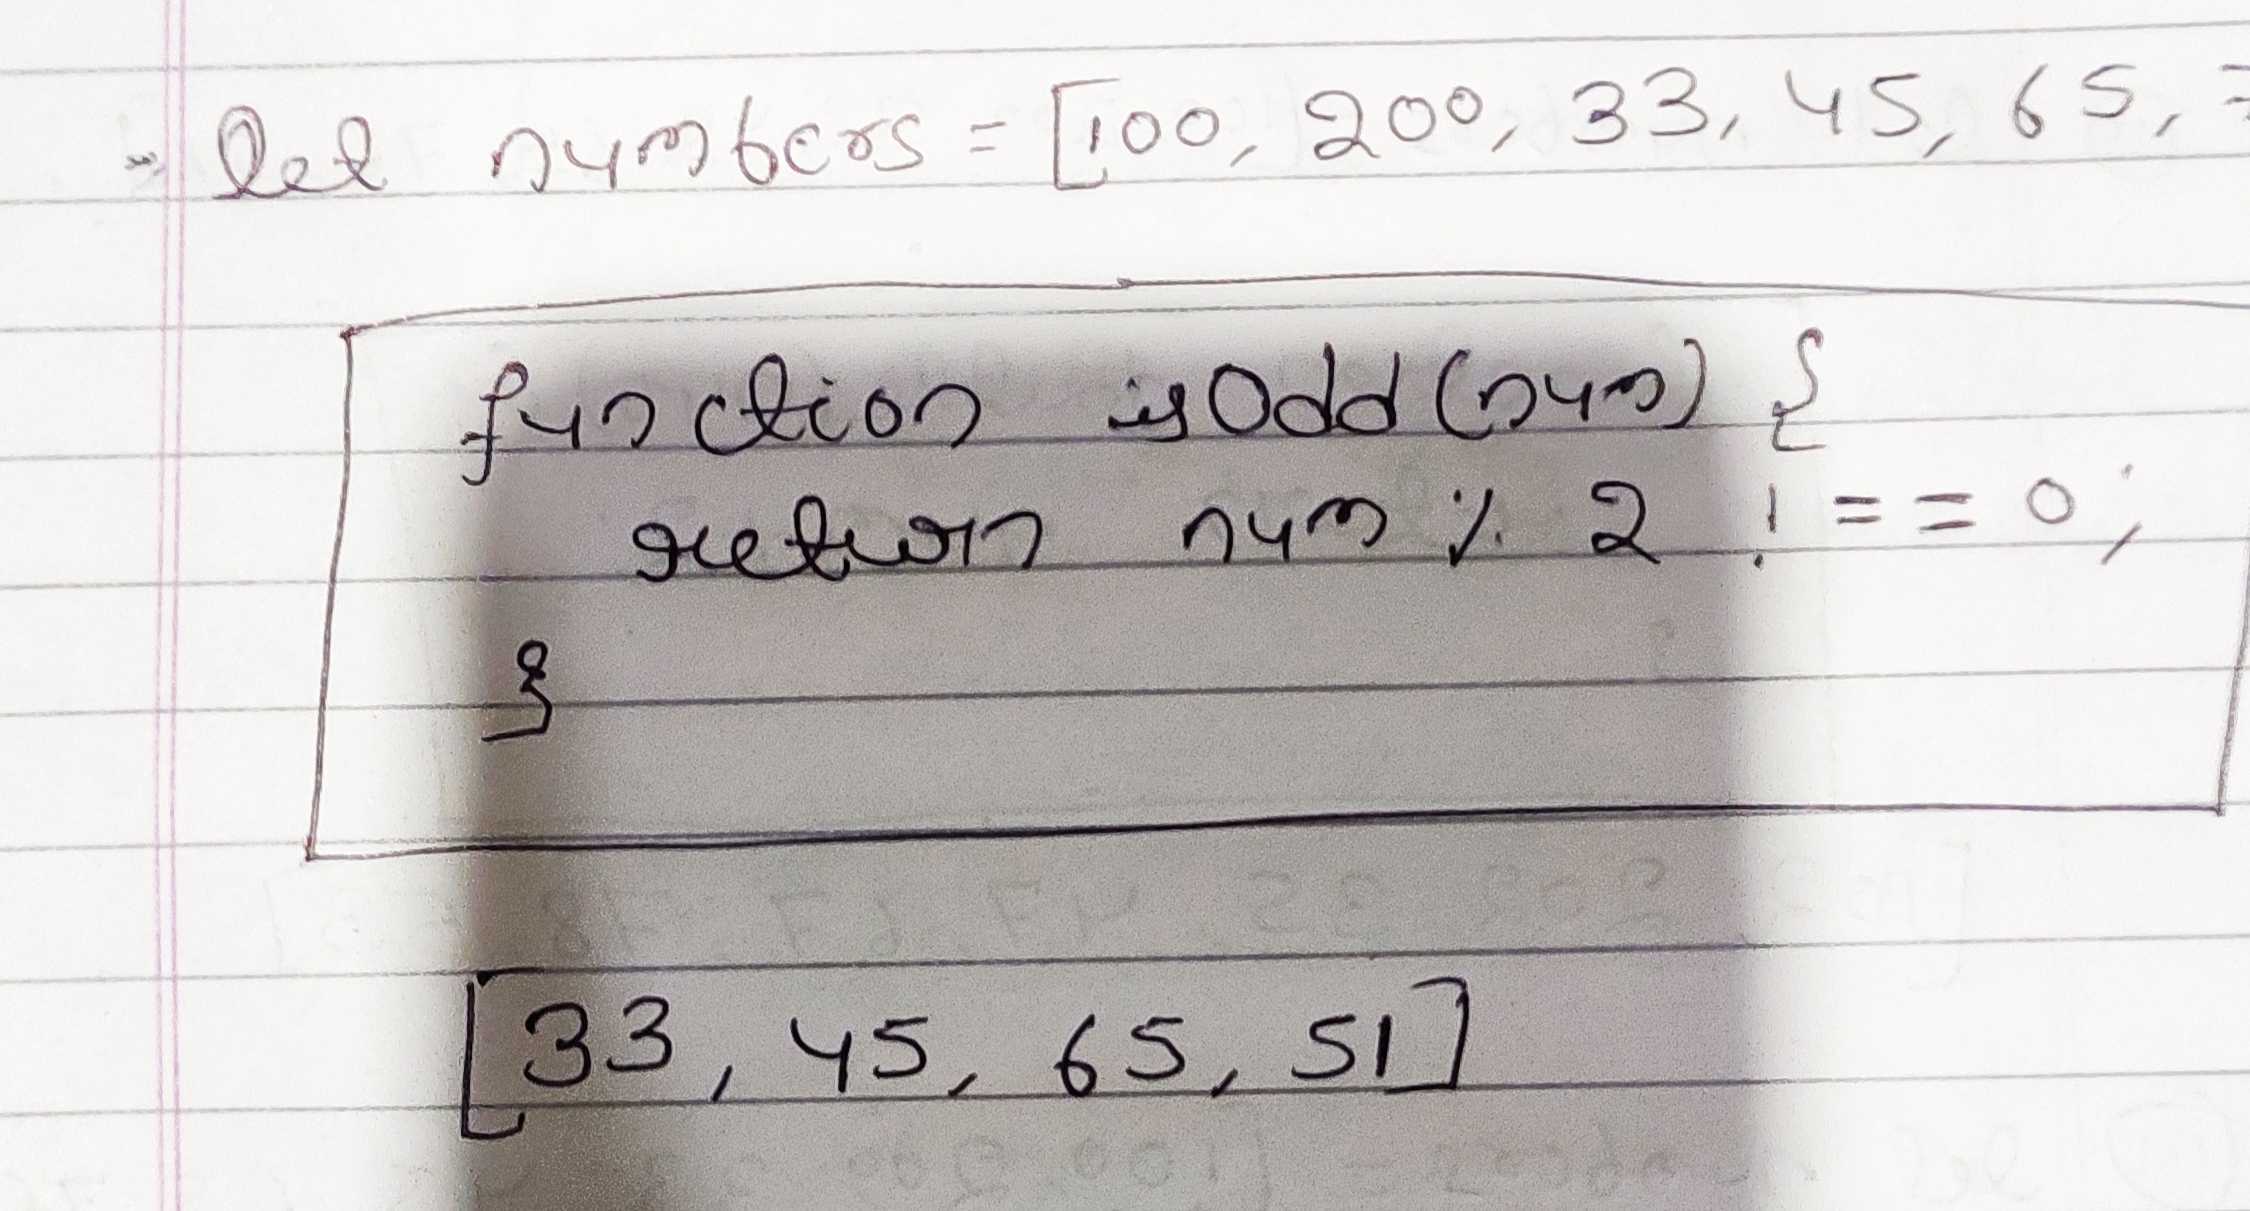 let numbers = [100, 200, 33, 45, 65,
function isOdd (num) {
return num % 2 !== 0;
}
[33, 45, 65, 51]